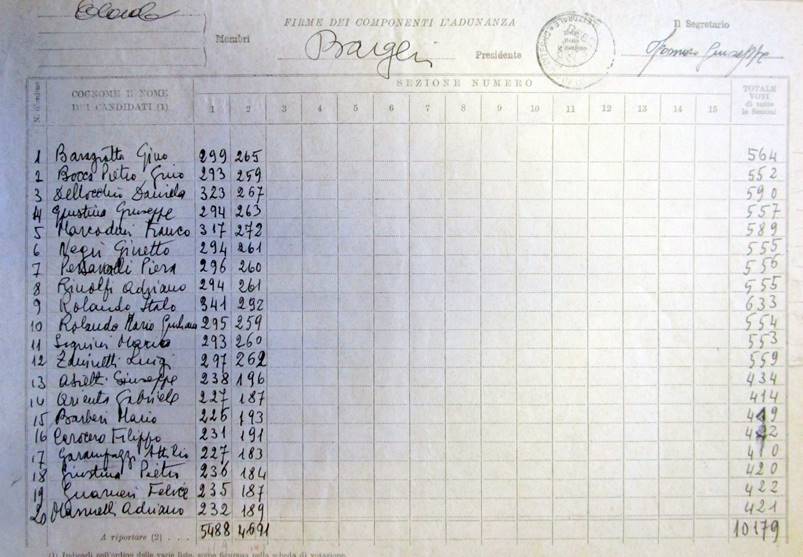 FIRME DEI COMPONENTI L'ADUNANZA
Il Segretario
Membri Presidente Giuseppe
N. d'ordine COGNOME E NOME DEI CANDIDATI (1) SEZIONE NUMERO TOTALE VOTI di tutte le Sezioni
1 2 3 4 5 6 7 8 9 10 11 12 13 14 15
1 Gino 299 265 564
2 Bocca Pietro Gino 293 259 552
3 Dellocchio Daniela 323 267 590
4 Giustina Giuseppe 294 263 557
5 Marcoduri Franco 317 272 589
6 Negri Ginetto 294 261 555
7 Piera 296 260 556
8 Rinolfi Adriano 294 261 555
9 Rolando Italo 341 292 633
10 Rolando Mario Giuliano 295 259 554
11 Maria 293 260 553
12 Luigi 297 262 559
13 Giuseppe 238 196 434
14 Arienta Gabriele 227 187 414
15 Barberi Mario 226 193 419
16 Carocero Filippo 231 191 422
17 Garampazzi Attilio 227 183 410
18 Giustina Pietro 236 184 420
19 Guarneri Felice 235 187 422
20 Mannelli Adriano 232 189 421
A riportare (2) . . . 5488 4691 10179